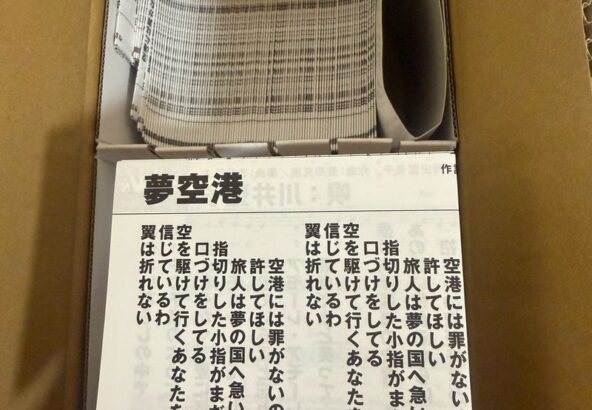 夢空港
作
空港には罪がない
許してほしい
旅人は夢の国へ急い
指切りした小指がまだ
口づけをしてる
空を駆けて行くあなたを
信じているわ
翼は折れない
空港には罪がないの
許してほしい
旅人は夢の国へ急い
指切りした小指がまだ
口づけをしてる
空を駆けて行くあなたを
信じているわ
翼は折れない